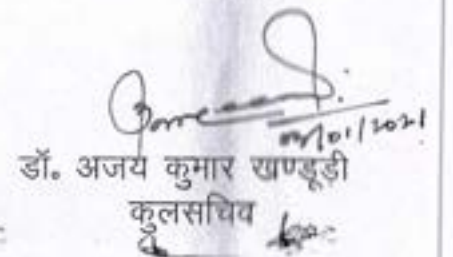 /01/2021
डॉ. अजय कुमार खण्डूड़ी
कुलसचिव